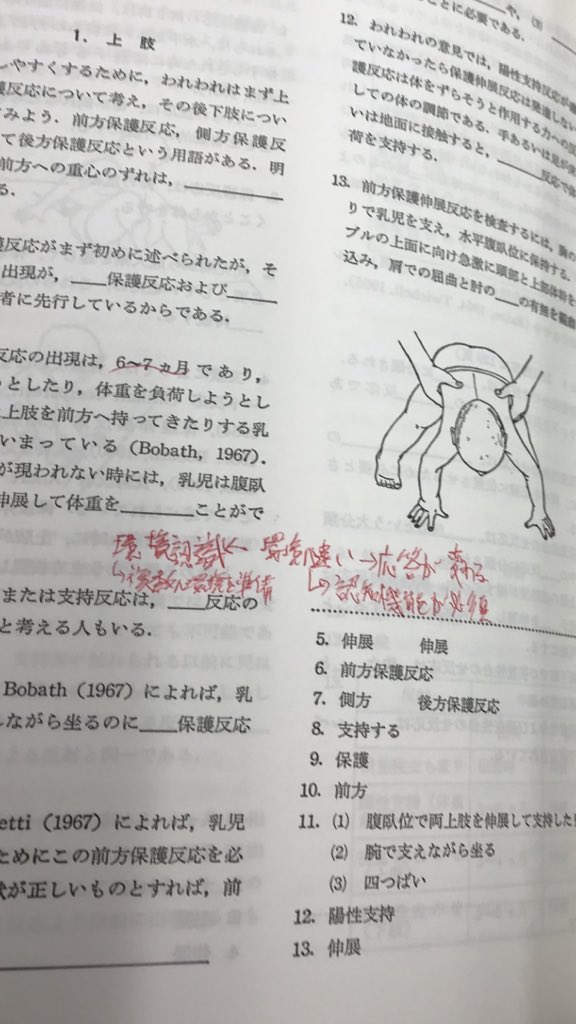 1. 上肢
しやすくするために，われわれはまず上
護反応について考え，その後下肢につい
みよう．前方保護反応，側方保護反
て後方保護反応という用語がある．明
前方への重心のずれは，
る．
護反応がまず初めに述べられたが，そ
出現が，____保護反応および____
者に先行しているからである．
反応の出現は，6〜7ヵ月であり，
うとしたり，体重を負荷しようとし
上肢を前方へ持ってきたりする乳
いまっている（Bobath, 1967）．
が現われない時には，乳児は腹臥
伸展して体重を____ことがで
または支持反応は，____反応の
と考える人もいる．
Bobath（1967）によれば，乳
しながら坐るのに____保護反応
etti（1967）によれば，乳児
ためにこの前方保護反応を必
が正しいものとすれば，前
とに必要である．
12. われわれの意見では，陽性支持反応が
ていなかったら保護伸展反応は発達しない
護反応は体をずらそうと作用する力への
しての体の調節である．手あるいは足が
いは地面に接触すると，____反応で
荷を支持する．
13. 前方保護伸展反応を検査するには，胸の
りで乳児を支え，水平腹臥位に保持する．
ブルの上面に向け急激に頭部と上部体幹を
込み，肩での屈曲と肘の____の有無を
環境認識へ 環境違い→応答が変わる
環境を準備
認知機能が必須
5. 伸展 伸展
6. 前方保護反応
7. 側方 後方保護反応
8. 支持する
9. 保護
10. 前方
11. (1) 腹臥位で両上肢を伸展して支持したり
(2) 腕で支えながら坐る
(3) 四つばい
12. 陽性支持
13. 伸展